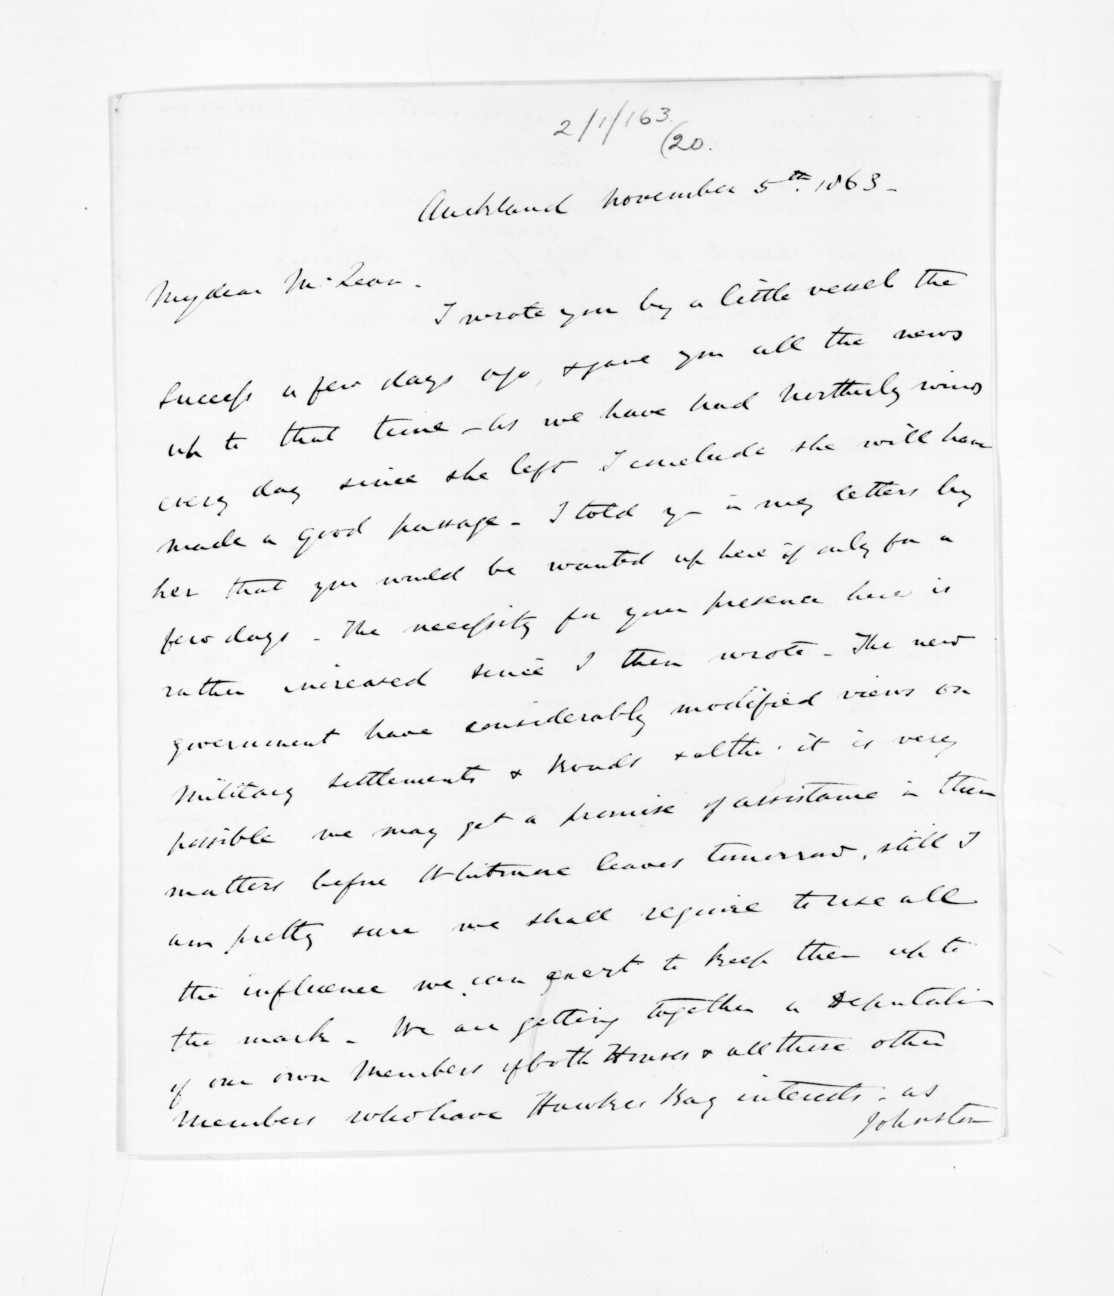 2/1/163.
(20.
Auckland November 5th. 1863 -
My dear McLean.
I wrote you by a little vessel the
Success a few days ago, & gave you all the news
up to that time - As we have had Northerly winds
every day since she left I conclude she will have
made a good passage - I told you in my letters by
her that you would be wanted up here if only for a
few days - The necessity for your presence here is
rather increased since I then wrote - The new
government have considerably modified views on
Military settlements & Roads & altho' it is very
possible we may get a promise of assistance in these
matters before Whitmore leaves tomorrow, still I
am pretty sure we shall require to use all
the influence we can exert to keep them up to
the mark - We are getting together a Deputation
of our own Members of both Houses & all those other
Members who have Hawkes Bay interests - as
Johnston